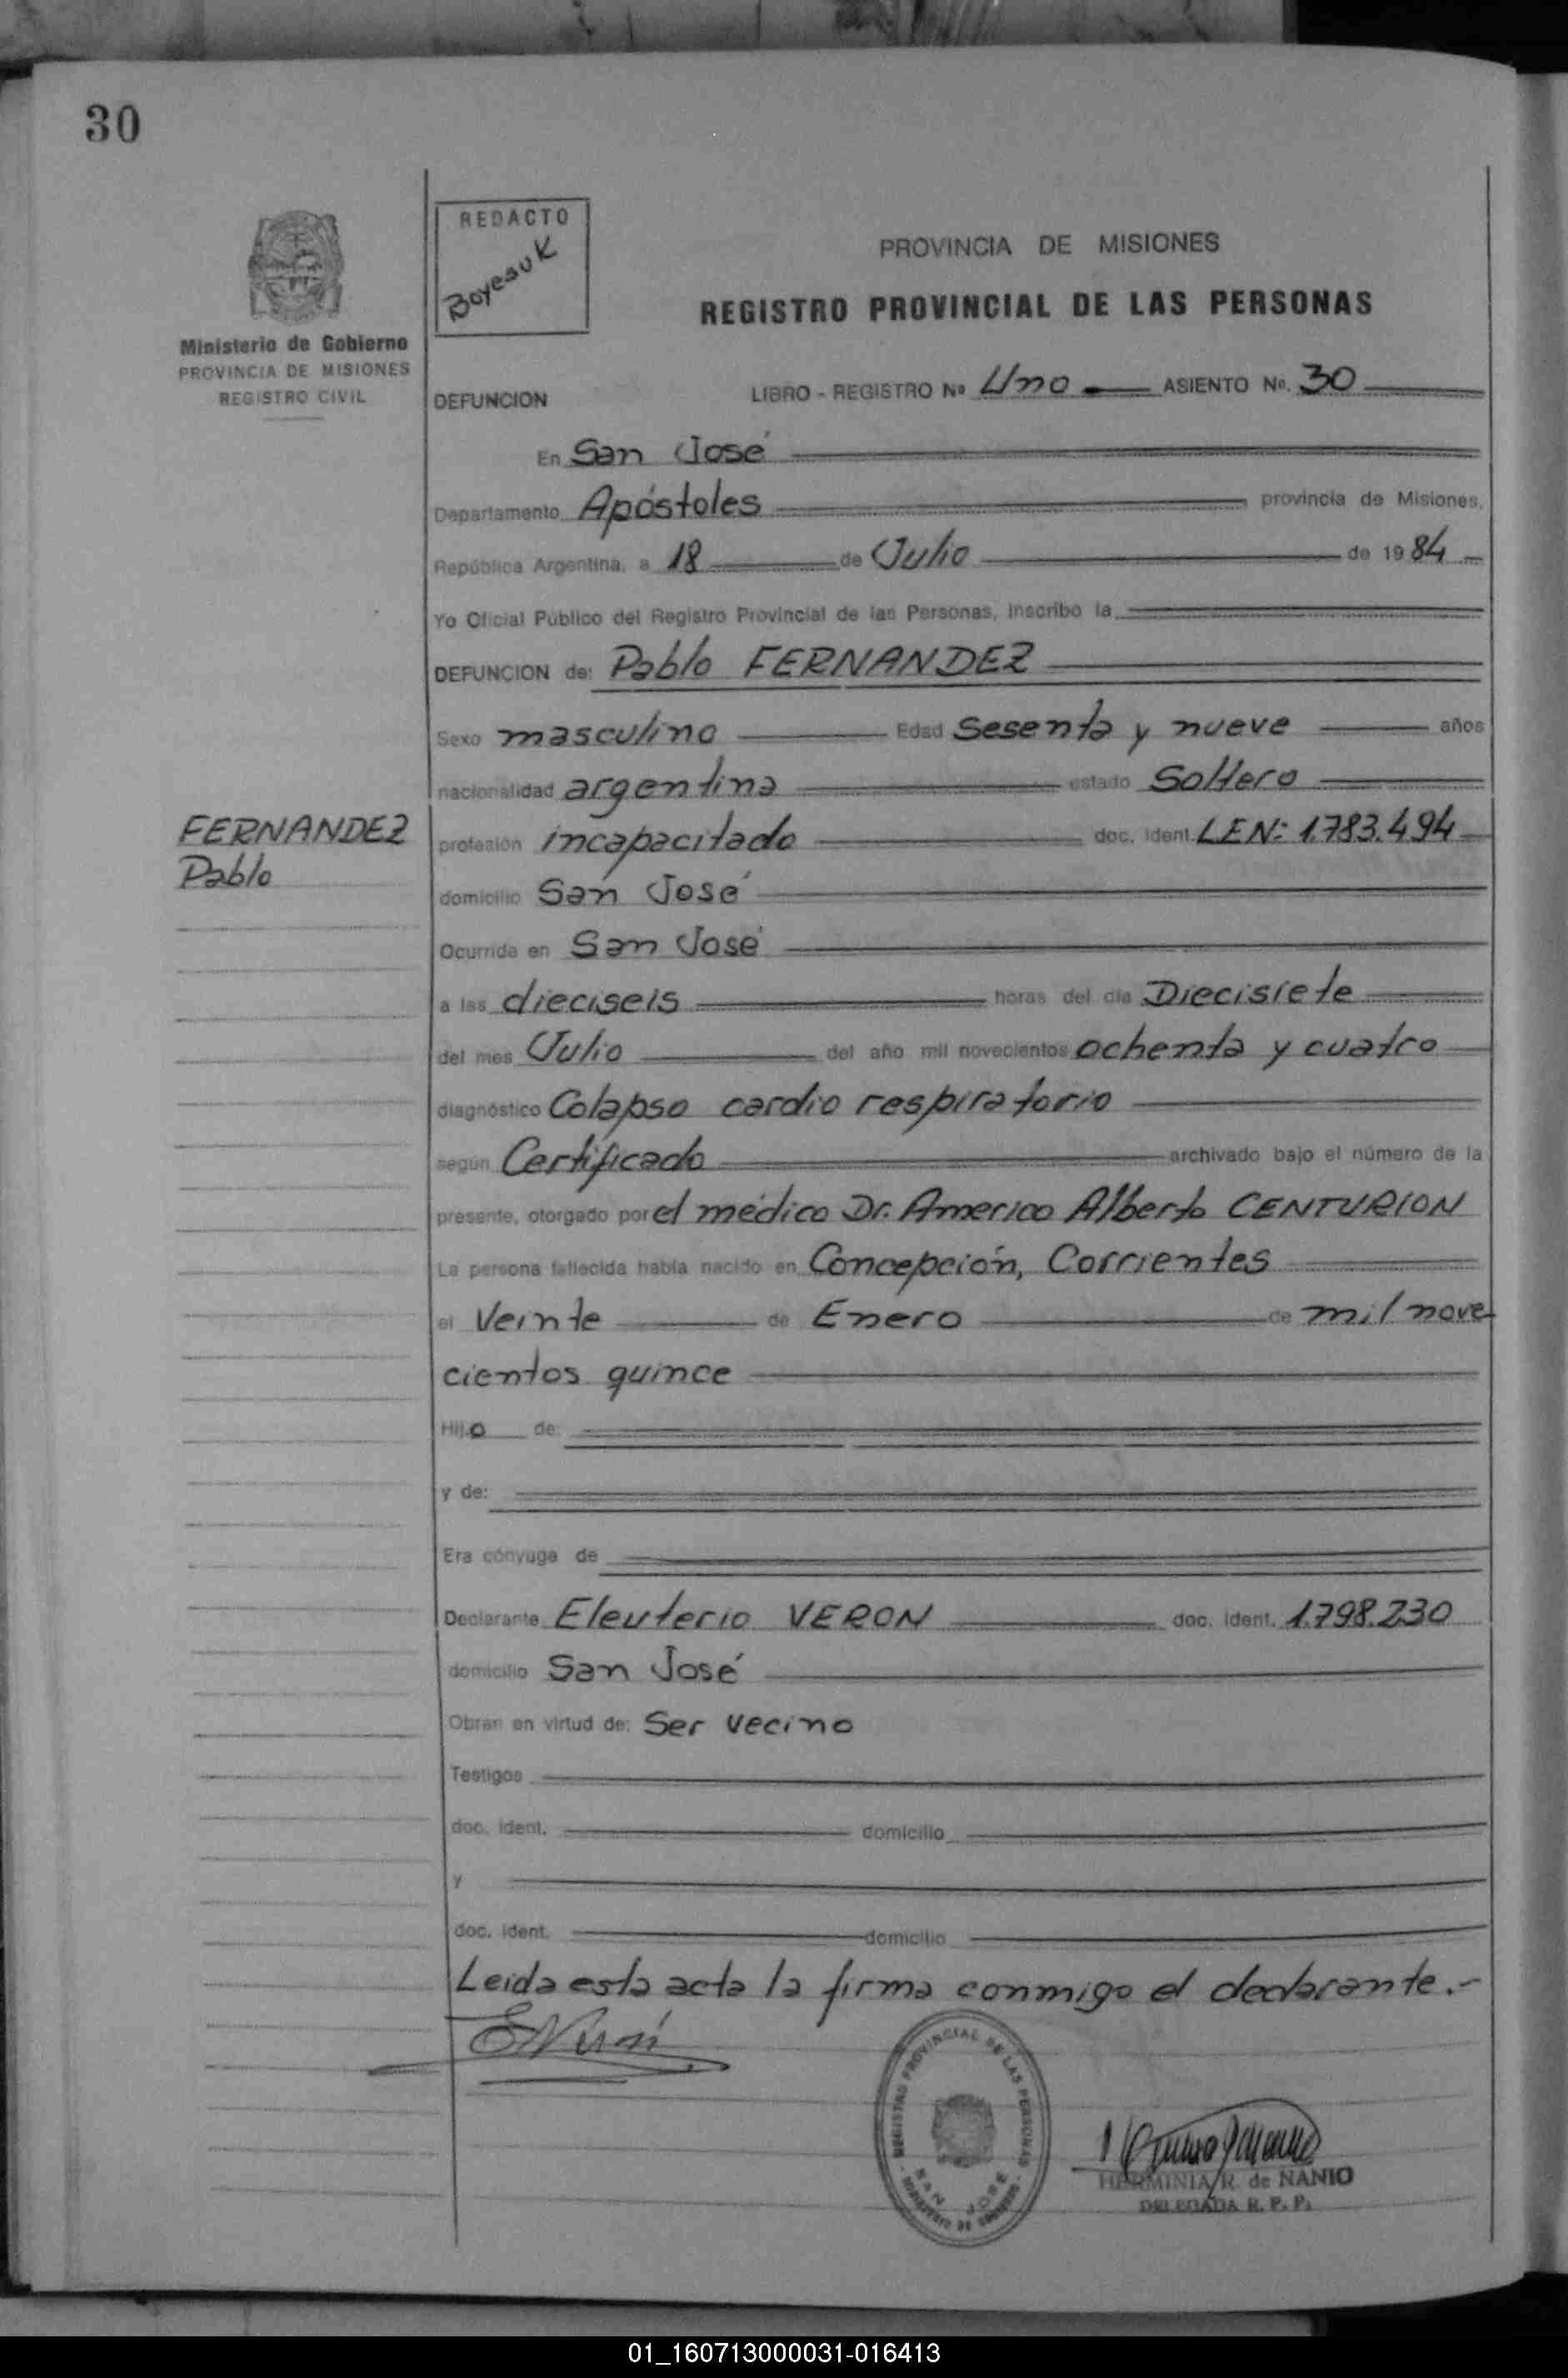 30
REDACTO
Boyesuk
Ministerio de Gobierno
PROVINCIA DE MISIONES
REGISTRO CIVIL
PROVINCIA DE MISIONES
REGISTRO PROVINCIAL DE LAS PERSONAS
DEFUNCION LIBRO - REGISTRO Nº Uno ASIENTO No. 30
En San José
Departamento Apóstoles provincia de Misiones,
República Argentina, a 18 de Julio de 1984
Yo Oficial Público del Registro Provincial de las Personas, inscribo la
DEFUNCION de: Pablo FERNANDEZ
Sexo masculino Edad Sesenta y nueve años
nacionalidad argentina estado Soltero
FERNANDEZ
Pablo
profesión incapacitado doc. ident. LEN: 1.783.494
domicilio San José
Ocurrida en San José
a las dieciseis horas del día Diecisiete
del mes Julio del año mil novecientos ochenta y cuatro
diagnóstico Colapso cardio respiratorio
según Certificado archivado bajo el número de la
presente, otorgado por el médico Dr. Americo Alberto CENTURION
La persona fallecida había nacido en Concepción, Corrientes
el Veinte de Enero de mil nove
cientos quince
Hijo de
y de:
Era cónyuge de
Declarante Eleuterio VERON doc. ident. 1.798.230
domicilio San José
Obran en virtud de: Ser vecino
Testigos
doc. ident. domicilio
y
doc. ident. domicilio
Leida esta acta la firma conmigo el declarante.-
REGISTRO PROVINCIAL DE LAS PERSONAS
SAN JOSE
MINISTERIO DE GOBIERNO
HERMINIA R. de NANIO
DELEGADA R. P. P.
01_160713000031-016413